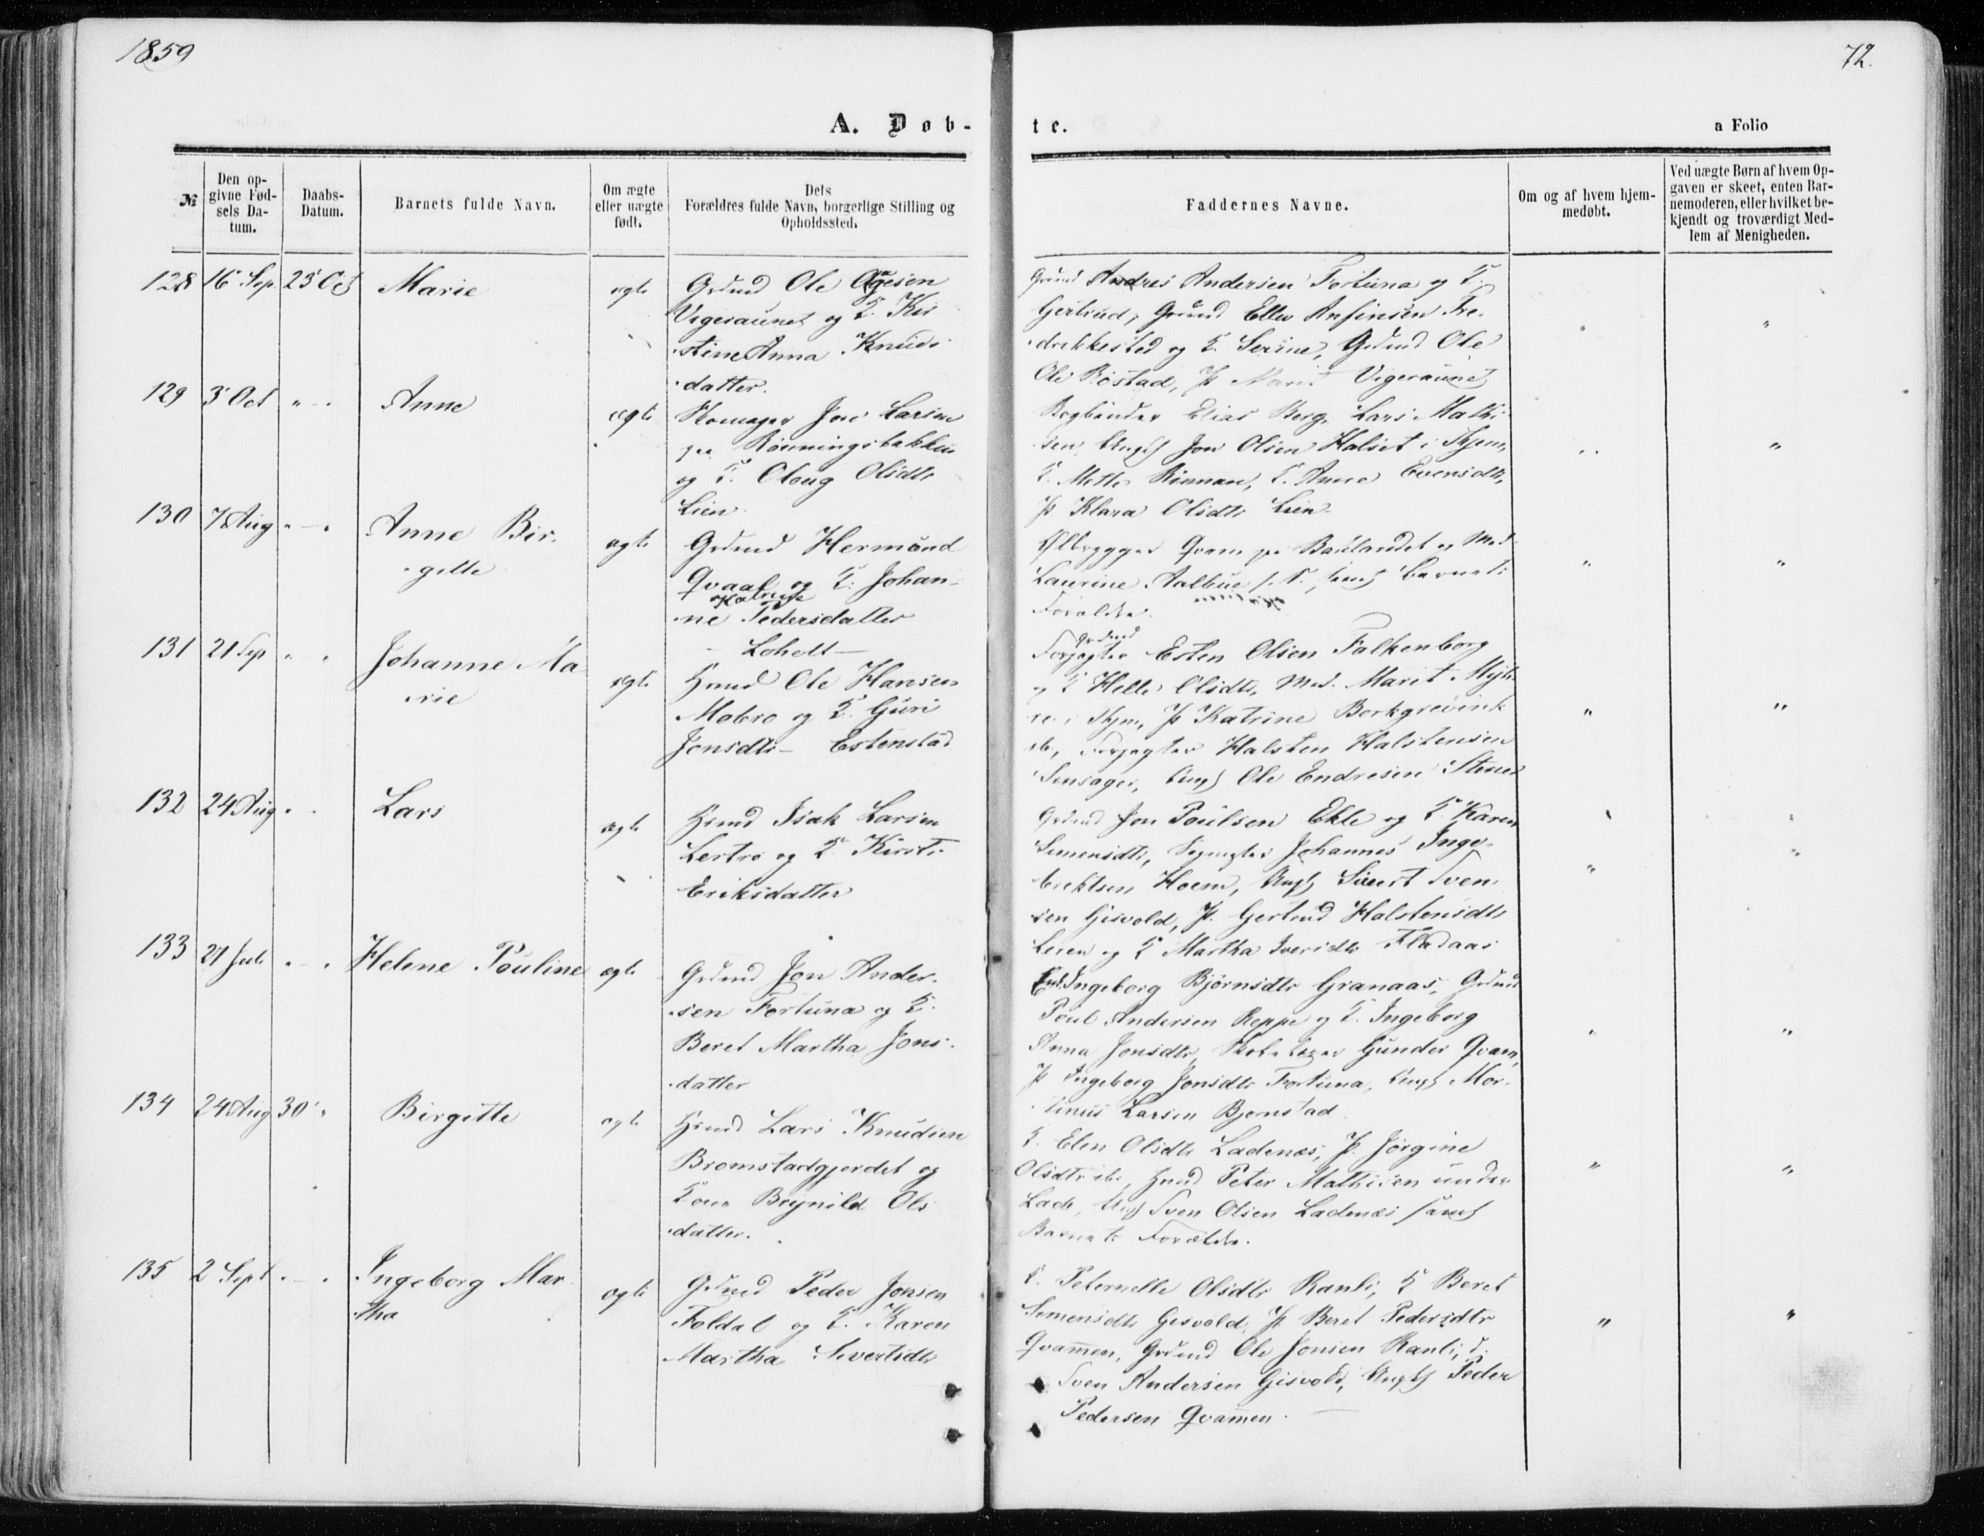 1859
72.
A. Døb-
te.
a Folio
№
Den op-
givne Fød-
sels Da-
tum.
Daabs-
Datum.
Barnets fulde Navn.
Om ægte
eller uægte
født.
Dets
Forældres fulde Navn, borgerlige Stilling og
Opholdssted.
Faddernes Navne.
Om og af hvem hjem-
medøbt.
Ved uægte Børn af hvem Op-
gaven er skeet, enten Bar-
nemoderen, eller hvilket be-
kjendt og troværdigt Med-
lem af Menigheden.
128 16 Sep. 23 Oct Marie ægte
Grdmd Ole Agesen
Vigeraunet og K. Kir
stine Anna Knuds
datter.
Grdmd Andres Andersen Fortuna og K.
Gertrud, Grdmd Ellev Anfinsen Fre-
drikkested og K. Serine, Grdmd Ole
Ols Rostad, P. Marit Vigeraunet
129 3 Oct " - . Anne ægte
Skomager Jon Larsen
paa Rønningsbakken
og K. Oloug Olsdtr
Lien
Bogbinder Elias Berg, Lars Mathi
sen, Ungk Jon Olsen Halset i Thjem,
K. Mette Rinnan, K. Anne Evensdtr,
P. Klara Olsdtr Lien.
130 7 Aug " - " Anne Bir-
gitte ægte
Grdmd Hermand
Qvaal og K. Johan-
ne Pedersdatter
Ølbrygger Qvam paa Baklandet og Mad.
Laurine Aalbue s. K., samt Barnets
Forældre.
131 21 Sep " " Johanne Ma
rie ægte
- Loholt -
Hmd Ole Hansen
Mobro og K. Guri
Jonsdtr - Estenstad
Grdmd
Esten Olsen Falkenborg
og K Helle Olsdtr, Mad. Marit
i Thjem, P Katrine Borkgrevink
Halsten Halstensen
Ungk Ole Endresen
132 24 Aug " . Lars ægte
Hmd Isak Larsen
Lertrø og K. Kirsti
Eriksdatter
Grdmd Jon Poulsen Ekle og K. Karen
Simensdtr, Johannes Inge-
brektsen Hoem, Ungk Siuert Sven
sen Gisvold, P. Gertrud Halstensdtr
Leren og K Martha Iversdtr Fladaas
133 27 Juli " - . Helene Pouline ægte
Grdmd Jon Ander-
sen Fortuna og K.
Beret Martha Jons-
datter
Ingeborg Bjørnsdtr Granaas, Grdmd
Poul Andersen Reppe og K. Ingeborg
Anna Jonsdtr, Gunder Qvam,
P Ingeborg Jonsdtr Fortuna, Ungk Mor-
tinus Larsen Bjørnstad.
134 24 Aug 30 " Birgitte ægte
Hmd Lars Knudsen
Bromstadgjerdet og
Kone Brynild Ols
datter.
K. Elen Olsdtr Ladenæs, P. Jørgine
Olsdtr ib, Hmd Peter Mathisen under
Lade, Ungk Sven Olsen Ladenæs samt
Barnets Forældre.
135 2 Sept " - . Ingeborg Mar
tha ægte
Grdmd Peder Jonsen
Foldal og K. Karen
Martha Sivertsdtr
K. Peternelle Olsdtr Ranli, K Beret
Simensdtr Gisvold, P Beret Pedersdtr
Qvammen, Grdmd Ole Jonsen Ranli, d.
Sven Andersen Gisvold, Ungk Peder
Pedersen Qvammen.